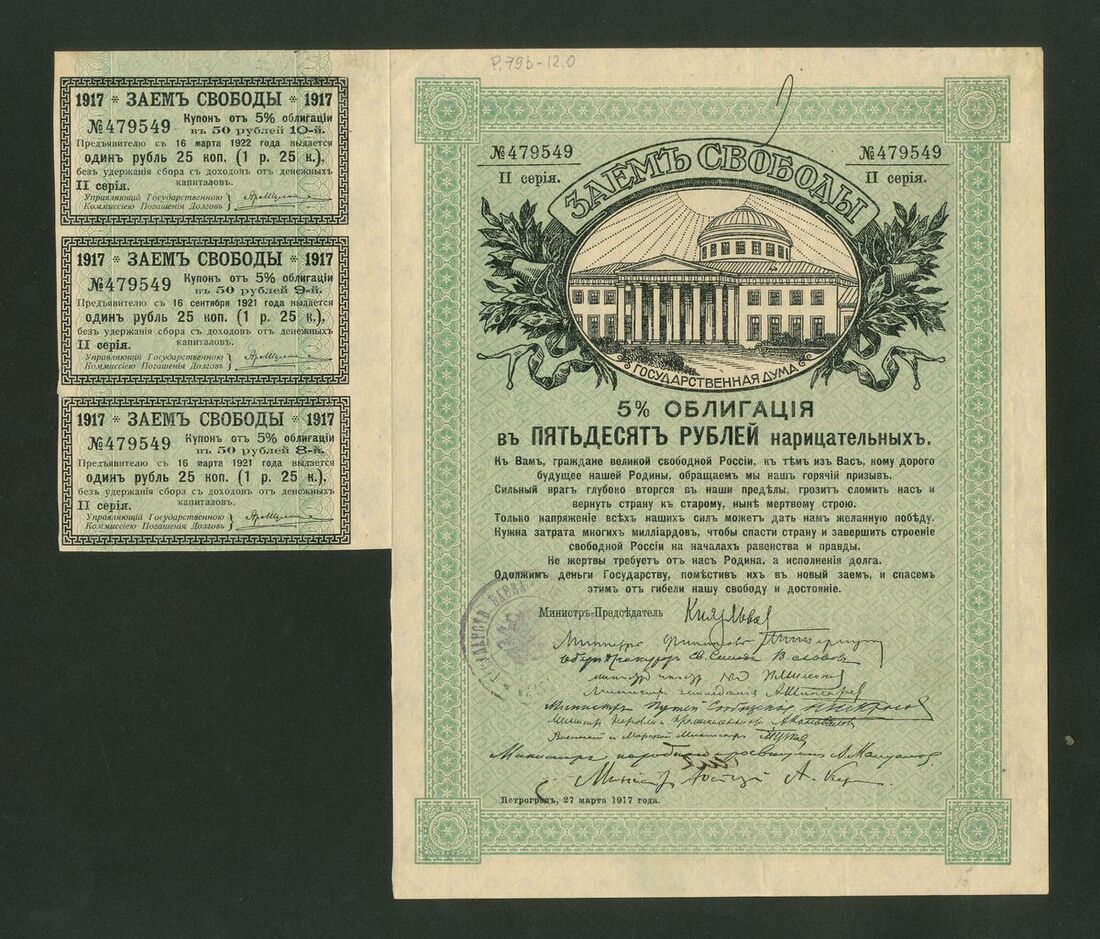 Р.79b-12.0
1917 * ЗАЕМЪ СВОБОДЫ * 1917
№479549
Купонъ отъ 5% облигаціи
въ 50 рублей 10-й.
Предъявителю съ 16 марта 1922 года выдается
одинъ рубль 25 коп. (1 р. 25 к.),
безъ удержанія сбора съ доходовъ отъ денежныхъ
II серія.
капиталовъ.
Управляющій Государственною
Коммиссіею Погашенія Долговъ
1917 * ЗАЕМЪ СВОБОДЫ * 1917
№479549
Купонъ отъ 5% облигаціи
въ 50 рублей 9-й.
Предъявителю съ 16 сентября 1921 года выдается
одинъ рубль 25 коп. (1 р. 25 к.),
безъ удержанія сбора съ доходовъ отъ денежныхъ
II серія.
капиталовъ.
Управляющій Государственною
Коммиссіею Погашенія Долговъ
1917 * ЗАЕМЪ СВОБОДЫ * 1917
№479549
Купонъ отъ 5% облигаціи
въ 50 рублей 8-й.
Предъявителю съ 16 марта 1921 года выдается
одинъ рубль 25 коп. (1 р. 25 к.),
безъ удержанія сбора съ доходовъ отъ денежныхъ
II серія.
капиталовъ.
Управляющій Государственною
Коммиссіею Погашенія Долговъ
№479549
II серія.
№479549
II серія.
ЗАЕМЪ СВОБОДЫ
ГОСУДАРСТВЕННАЯ ДУМА
5% ОБЛИГАЦІЯ
въ ПЯТЬДЕСЯТЪ РУБЛЕЙ нарицательныхъ.
Къ Вамъ, граждане великой свободной Россіи, къ тѣмъ изъ Васъ, кому дорого
будущее нашей Родины, обращаемъ мы нашъ горячій призывъ.
Сильный врагъ глубоко вторгся въ наши предѣлы, грозитъ сломить насъ и
вернуть страну къ старому, нынѣ мертвому строю.
Только напряженіе всѣхъ нашихъ силъ можетъ дать намъ желанную побѣду.
Нужна затрата многихъ милліардовъ, чтобы спасти страну и завершить строеніе
свободной Россіи на началахъ равенства и правды.
Не жертвы требуетъ отъ насъ Родина, а исполненія долга.
Одолжимъ деньги Государству, помѣстивъ ихъ въ новый заемъ, и спасемъ
этимъ отъ гибели нашу свободу и достояніе.
Министръ-Предсѣдатель Князь Львов
Министръ Финансовъ
Оберъ Прокуроръ Св. Синода В. Львовъ
Министръ земледѣлія А. Шингаревъ
Министръ Путей Сообщенія Н. Некрасов
Военный и Морской Министръ
Министръ народнаго просвѣщенія А. Мануйлов
Министр Юстиціи А. Кер
Петроградъ, 27 марта 1917 года.